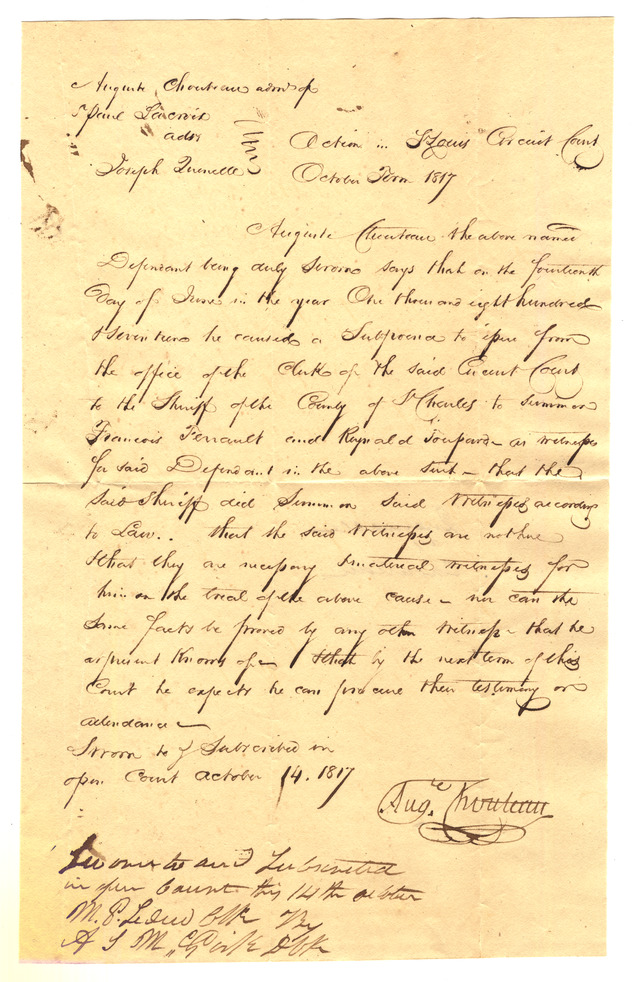 Auguste Chouteau admr of
Paul Lacroix
ads
Joseph Quenelle
Action ... St Louis Circuit Court
October Term 1817
Auguste Chouteau the above named
Defendant being duly sworn says that on the fourteenth
Day of June in the year One thousand eight hundred
& seventeen he caused a Subpoena to issue from
the office of the Clerk of the said Circuit Court
to the Sheriff of the County of St Charles to summon
Francois and Raynald as witnesses
for said Defendant in the above suit - that the
said Sheriff did Summon said Witnesses according
to Law .. that the said Witnesses are not here
that they are necessary & material witnesses for
him on the trial of the above cause - nor can the
Same facts be proved by any other Witness - that he
at present Knows of - that by the next term of this
Court he expects he can procure their testimony or
attendance -
Sworn to & Subscribed in
open Court October 14. 1817
Augte Chouteau
Sworn to and Subscribed
in open Court this 14th october
M. P. Leduc Clk By
A S Mc Girk D Clk